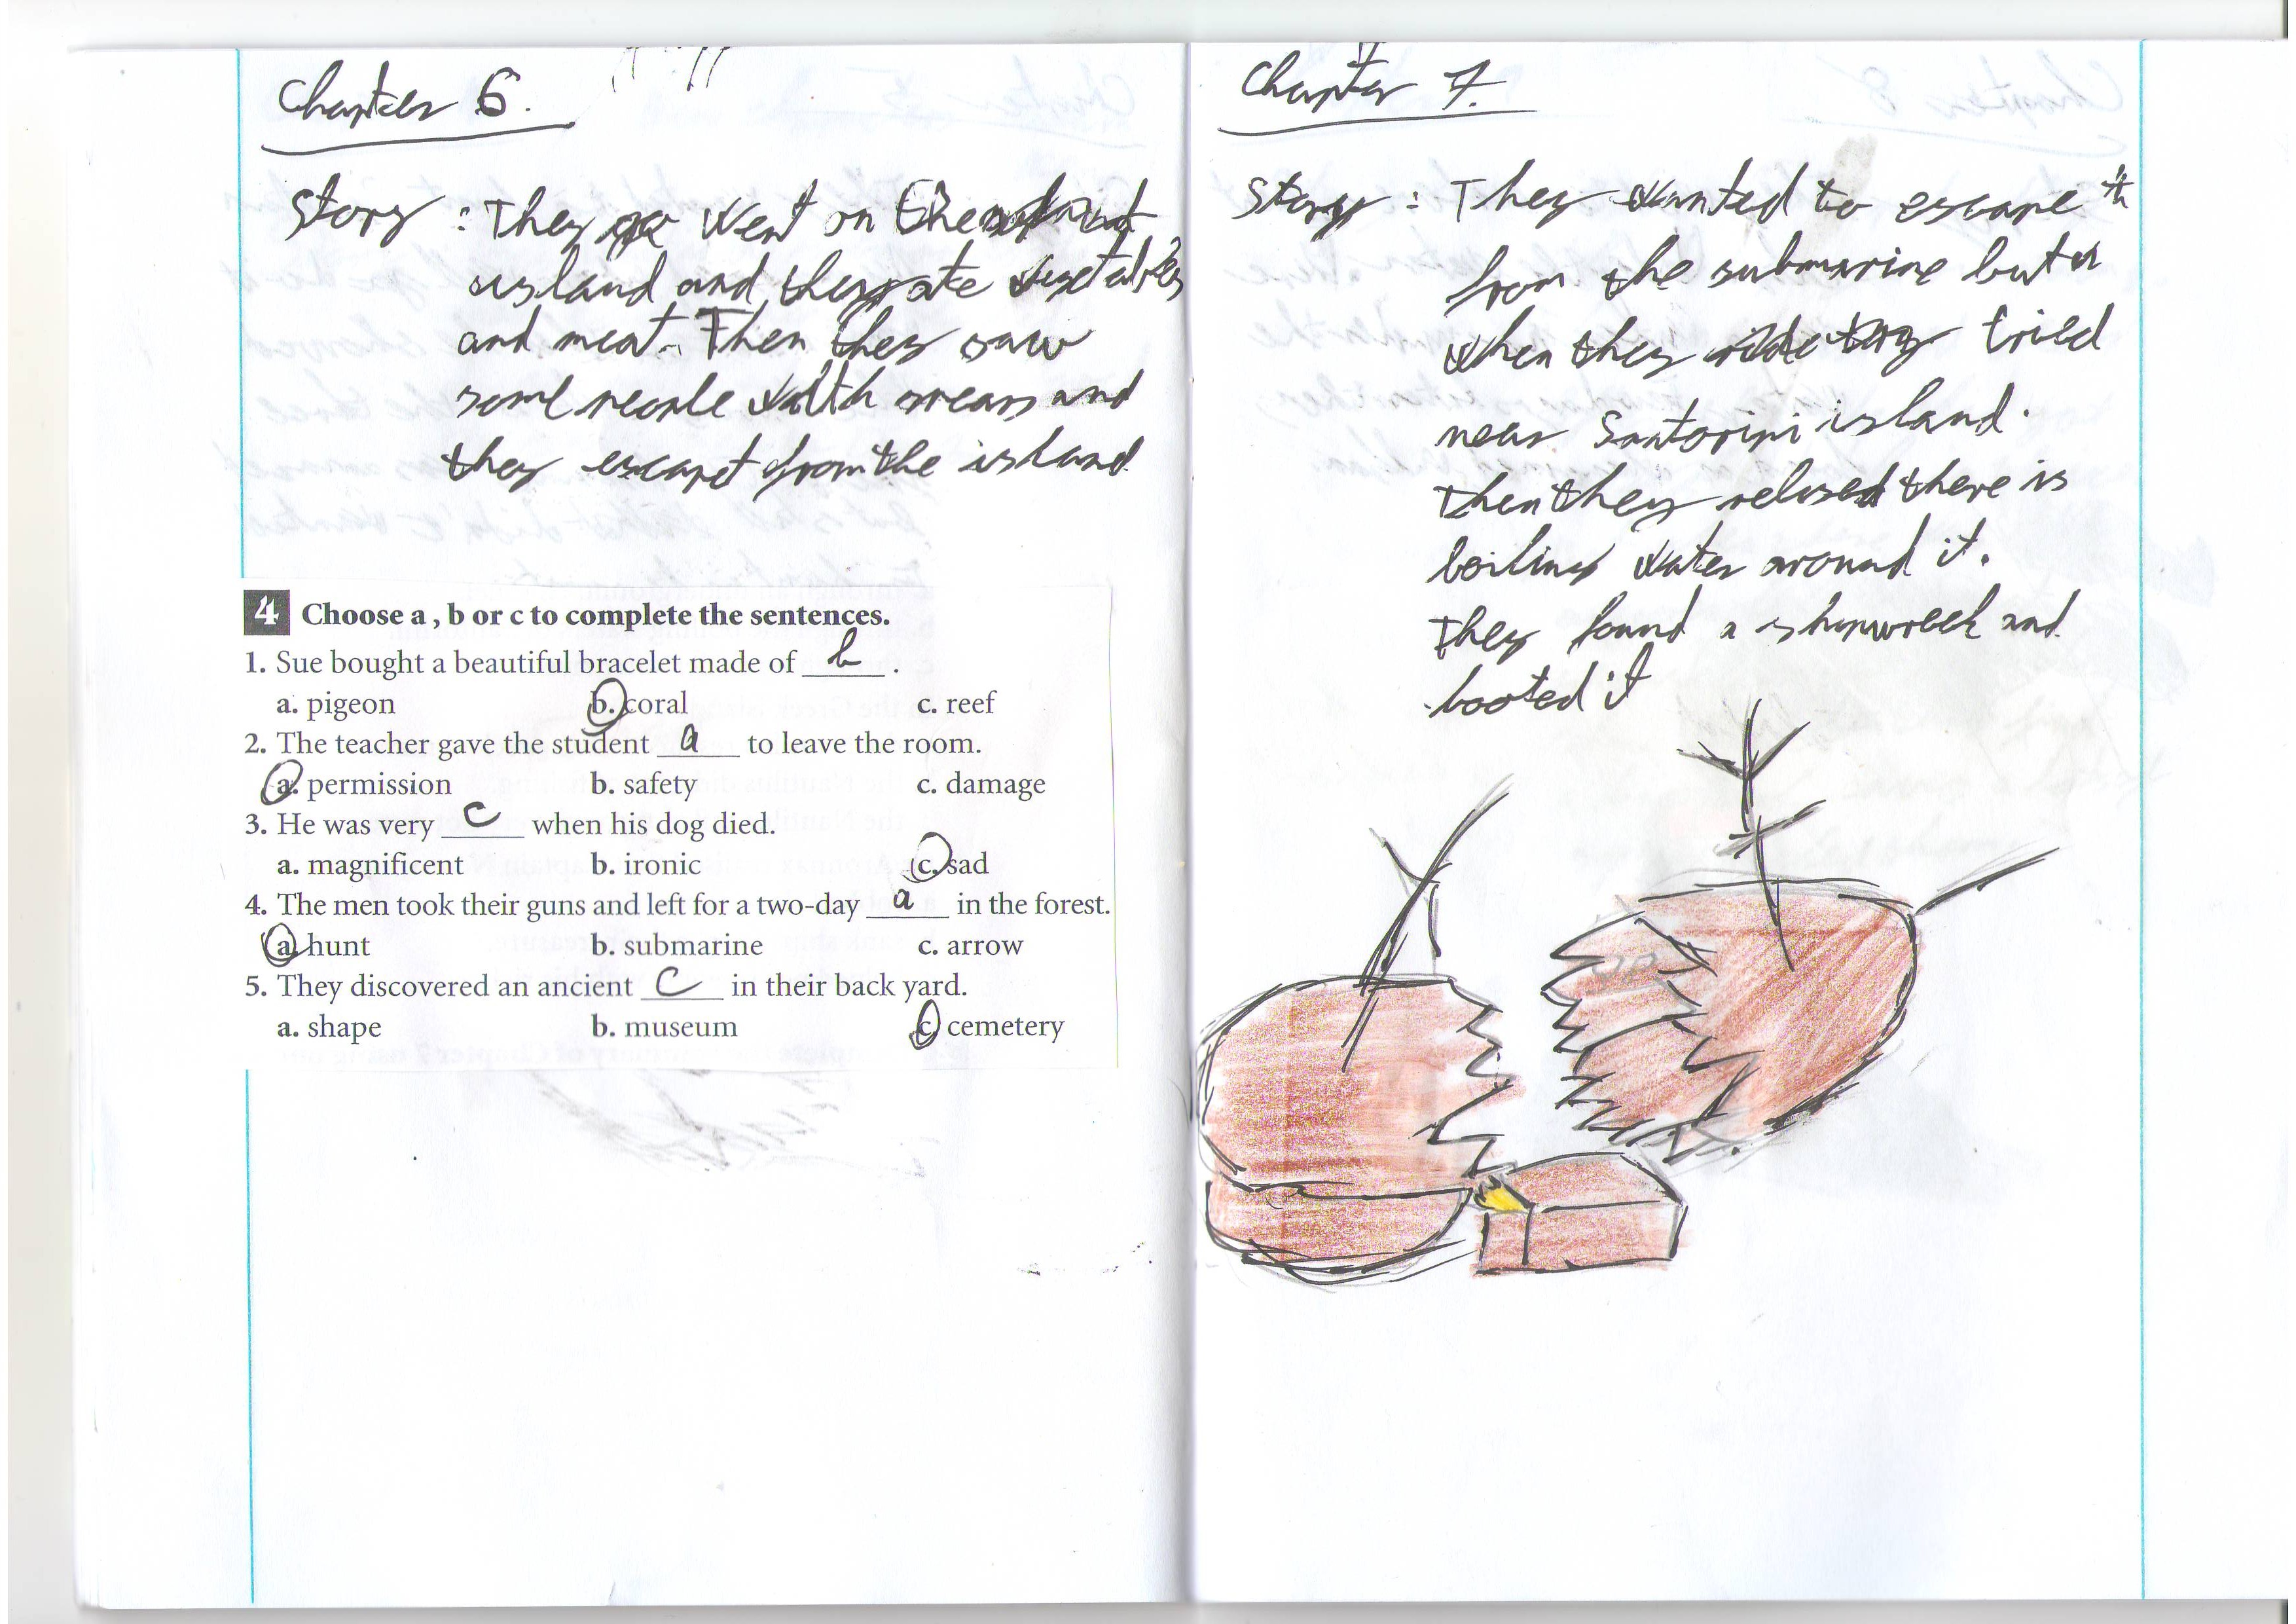 Chapter 6.
Story : They went on the
island and they ate vegetables
and meat. Then they saw
some people with spears and
they escapet from the island
4 Choose a , b or c to complete the sentences.
1. Sue bought a beautiful bracelet made of b .
a. pigeon b. coral c. reef
2. The teacher gave the student a to leave the room.
a. permission b. safety c. damage
3. He was very c when his dog died.
a. magnificent b. ironic c. sad
4. The men took their guns and left for a two-day a in the forest.
a. hunt b. submarine c. arrow
5. They discovered an ancient c in their back yard.
a. shape b. museum c. cemetery
Chapter 7.
Story : They wanted to escape
from the submarine but
when they tried
near Santorini island.
Then they relised there is
boiling water around it.
They found a shipwreck and
looted it